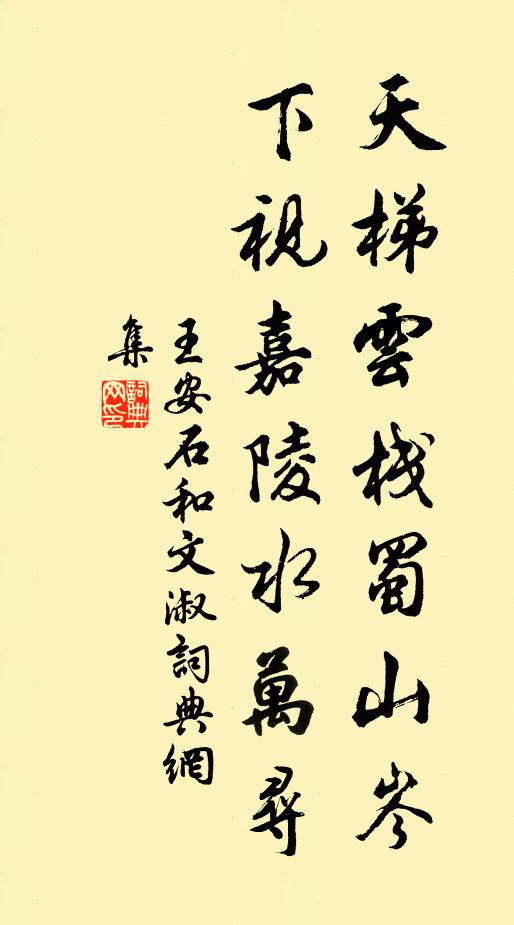 天梯雲棧蜀山岑
下視嘉陵水萬尋
王安石和文淑詞典網
集
詞典網印